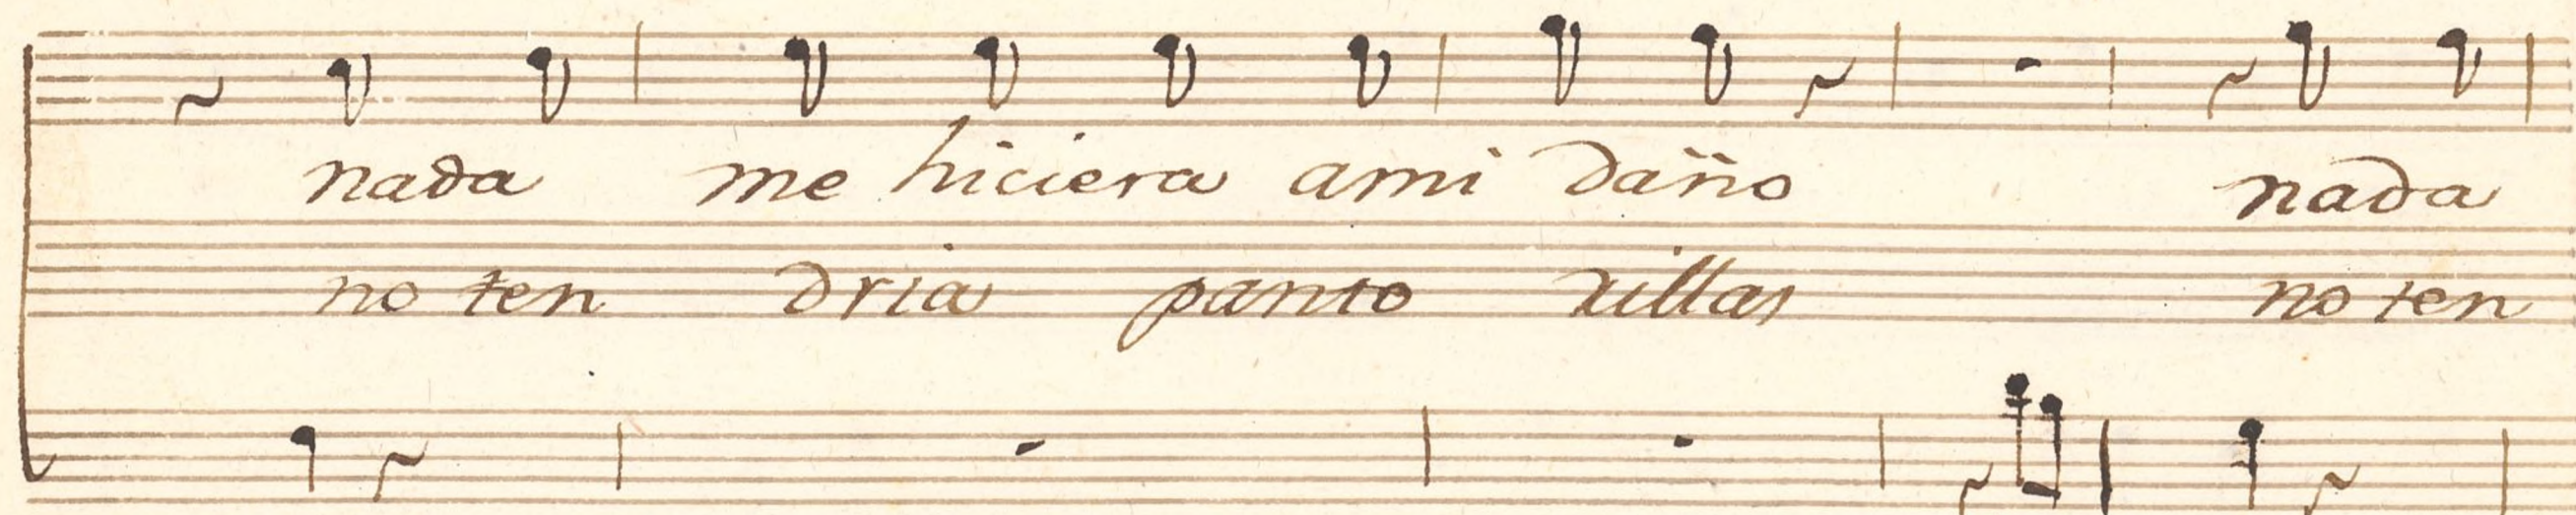 nada me hiciera ami daño nada
no ten dria panto rillas no ten